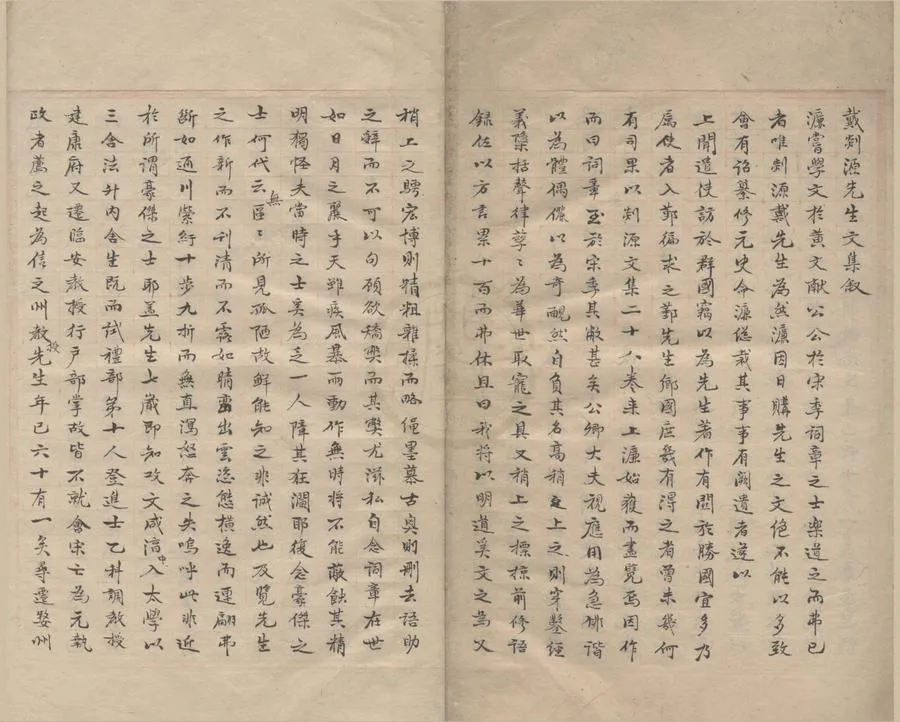 戴剡源先生文集叙
濂嘗學文於黄文献公公於宋季詞章之士樂道之而弗已
者唯剡源戴先生為然濂因日購先生之文絶不能以多致
會有詔纂修元史命濂緫裁其事事有闕遺者遂以
上聞遣使訪於群國竊以為先生著作有関於勝國宜多乃
屬使者入鄞徧求之鄞先生鄉國庶幾有得之者曾未幾何
有司果以剡源文集二十八卷来上濂始獲而盡覧焉因作
而曰詞章至於宋季其敝甚矣公卿大夫視應用為急俳諧
以為體偶儷以為奇靦然自負其名高稍上之則穿鑿經
義隳括聲律孳〻為華世取寵之具又稍上之摽掠前修語
録佐以方言累十百而弗休且曰我将以明道奚文之為又
稍上之騁宏博則精粗雜揉而略繩墨慕古奥則刪去語助
之辭而不可以句顧欲矯弊而其弊尤滋私自念詞章在世
如日月之麗乎天雖疾風暴雨動作無時将不能蔽蝕其精
明獨怪夫當時之士奚為乏一人障其狂瀾耶復念豪傑之
士何代云無區〻所見孤陋故鮮能知之非誠然也及覧先生
之作新而不刊清而不露如晴巒出雲恣態横逸而連翩弗
斷如通川縈紆十步九折而無直瀉怒奔之失嗚呼此非近
於所謂豪傑之士耶盖先生七歲即知攻文咸淳中入太學以
三舍法升内舍生既而試禮部第十人登進士乙科調教授
建康府又遷臨安教授行户部掌故皆不就會宋亡為元執
政者薦之起為信之州教授先生年已六十有一矣尋遷婺州